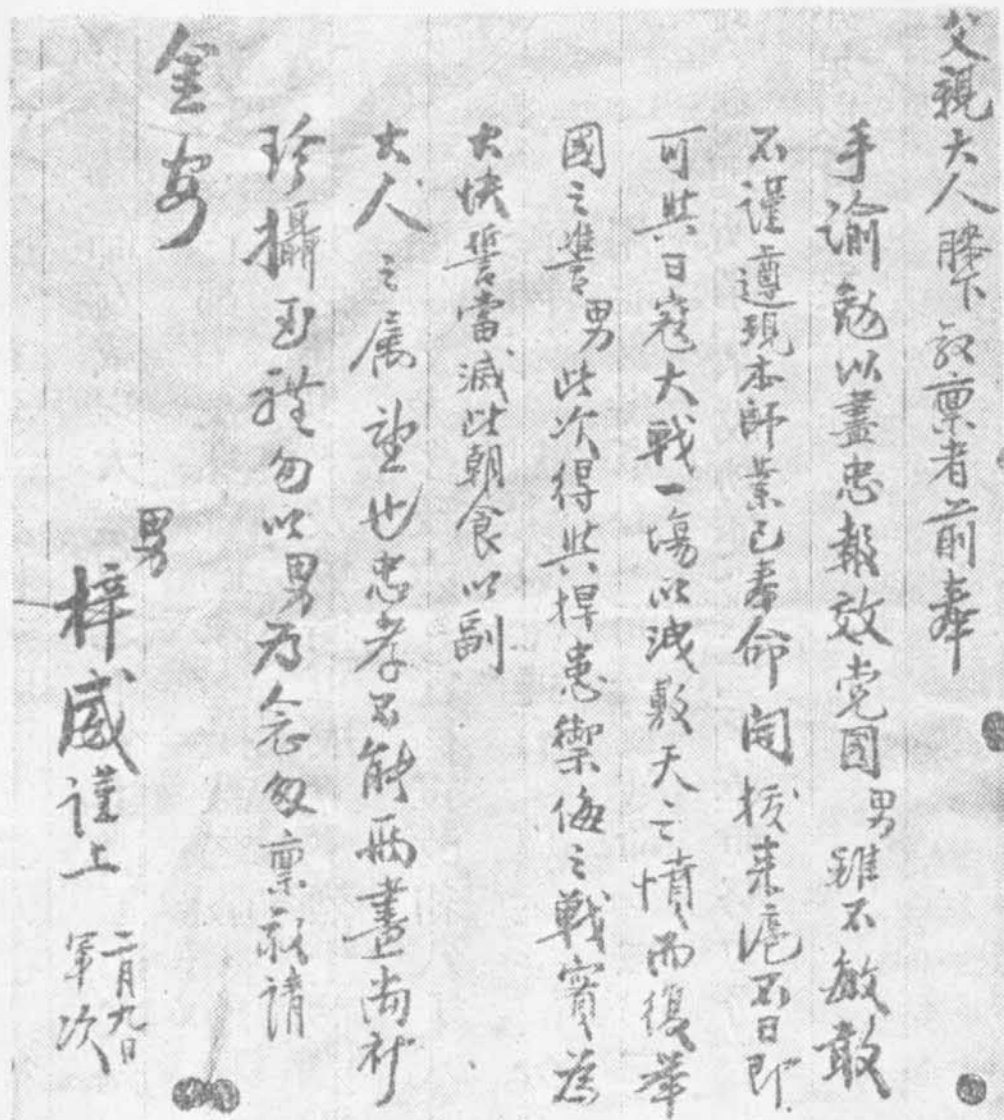 父親大人膝下敬稟者前奉
手諭勉以盡忠報效党国男雖不敏敢
不謹遵現本師業已奉命開拔来滬不日即
可與日寇大戰一場以洩敷天之憤而復舉
國之讐男此次得與捍患禦侮之戰實為
大快誓當滅此朝食以副
大人之属望也忠孝不能兩盡尚祈
珍攝玉體勿以男為念匆稟敬請
金安
男
梓威謹上
二月九日
軍次